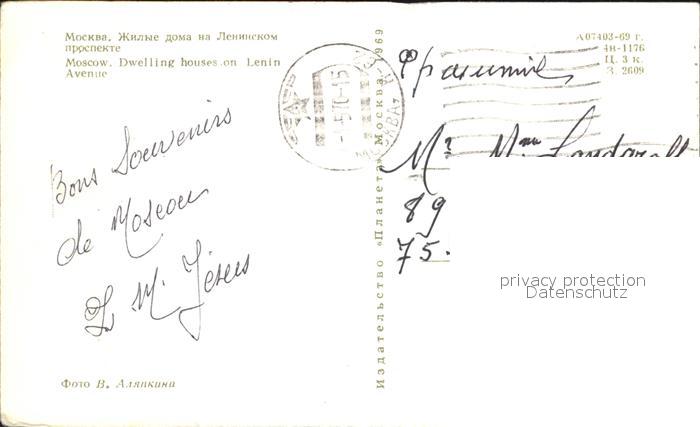 Москва. Жилые дома на Ленинском
проспекте
Moscow. Dwelling houses on Lenin
Avenue
Bons Souvenirs
de Moscou
M. Jesus
Фото В. Аляпкина
Издательство «Планета» Москва-1969
А07403-69 г.
4н-1176
Ц. 3 к.
З. 2609
Mr Mme
89
75.
privacy protection
Datenschutz